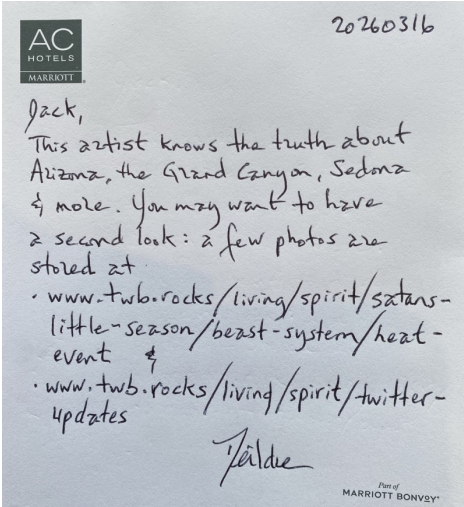 20260316
AC
HOTELS
MARRIOTT
Jack,
This artist knows the truth about
Arizona, the Grand Canyon, Sedona
& more. You may want to have
a second look: a few photos are
stored at
• www.twb.rocks/living/spirit/satans-
little-season/beast-system/heat-
event &
• www.twb.rocks/living/spirit/twitter-
updates
Part of
MARRIOTT BONVOY®